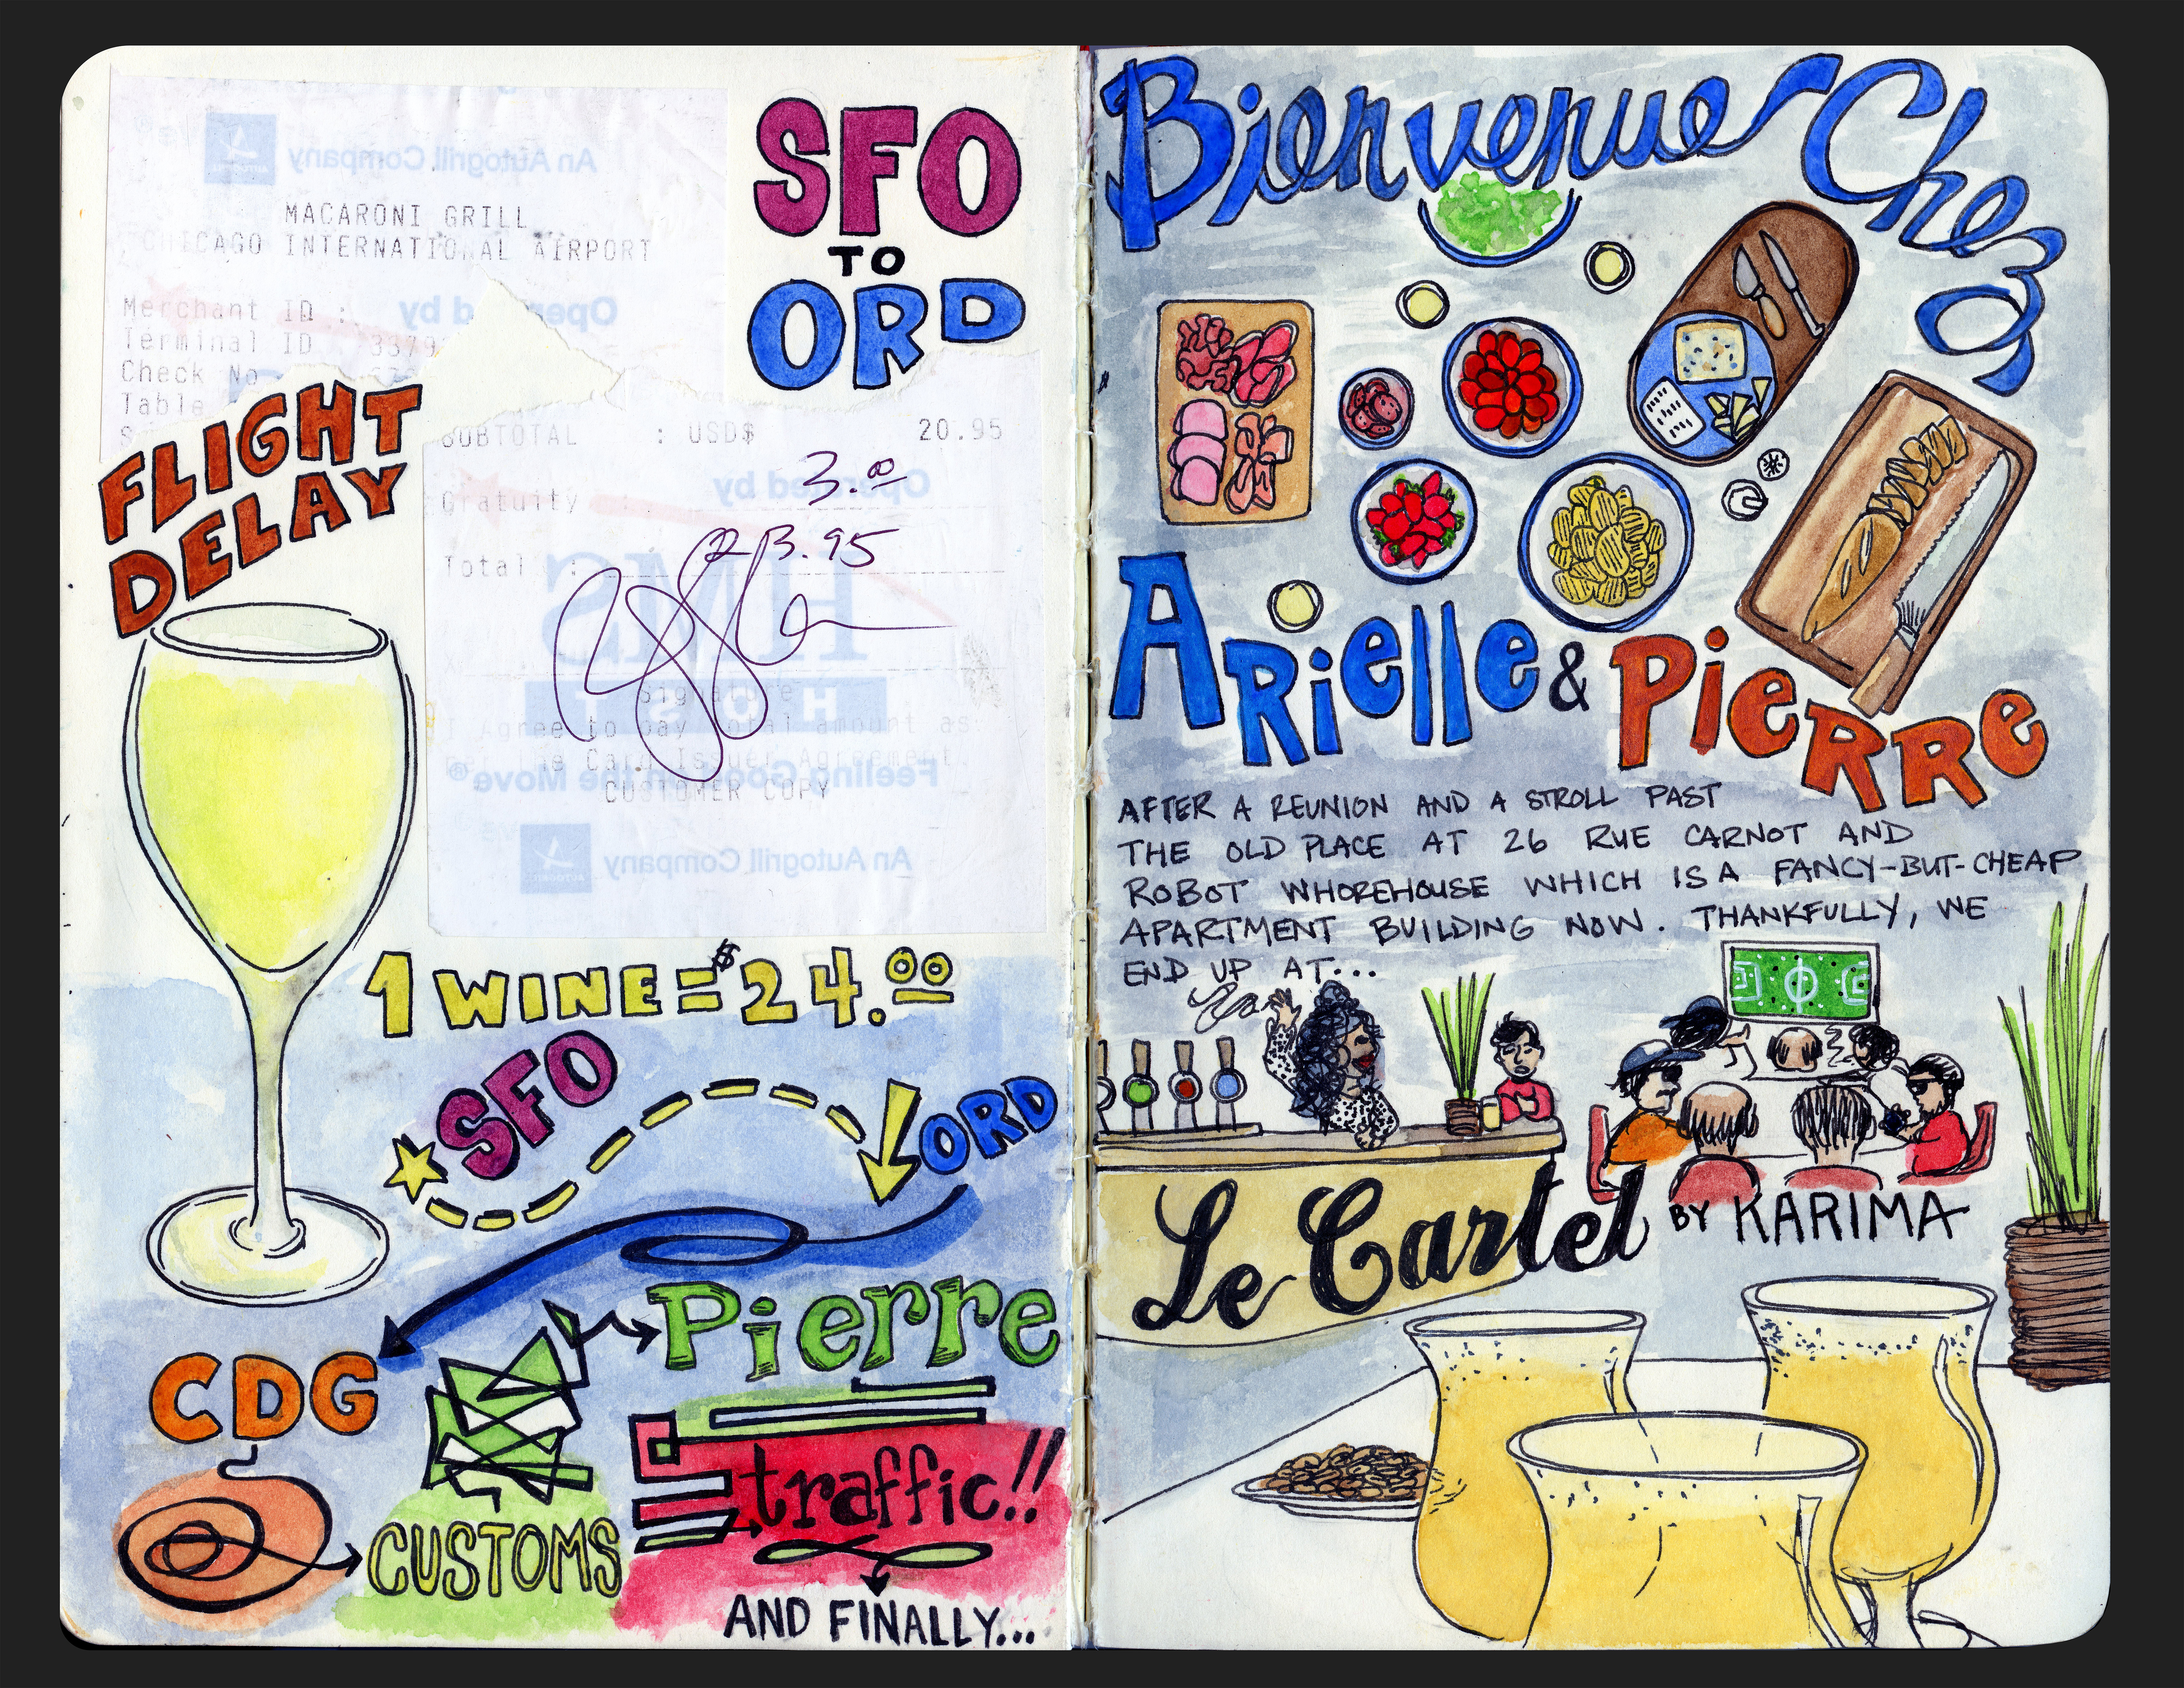 An Autogrill Company
MACARONI GRILL
CHICAGO INTERNATIONAL AIRPORT
Operated by
Merchant ID :
Terminal ID
Check No
Table
SFO
TO
ORD
FLIGHT
DELAY
SUBTOTAL : USD$ 20.95
Operated by
Gratuity : 3.00
Total : 23.95
HMS
HOST
Signature
I Agree to pay total amount as
per the Card Issuer Agreement.
Feeling Good on the Move®
CUSTOMER COPY
An Autogrill Company
1 WINE = $24.00
SFO
ORD
CDG
CUSTOMS
Pierre
traffic!!
AND FINALLY...
Bienvenue Chez
ARielle & PieRRe
AFTER A REUNION AND A STROLL PAST
THE OLD PLACE AT 26 RUE CARNOT AND
ROBOT WHOREHOUSE WHICH IS A FANCY-BUT-CHEAP
APARTMENT BUILDING NOW. THANKFULLY, WE
END UP AT...
Le Cartel BY KARIMA